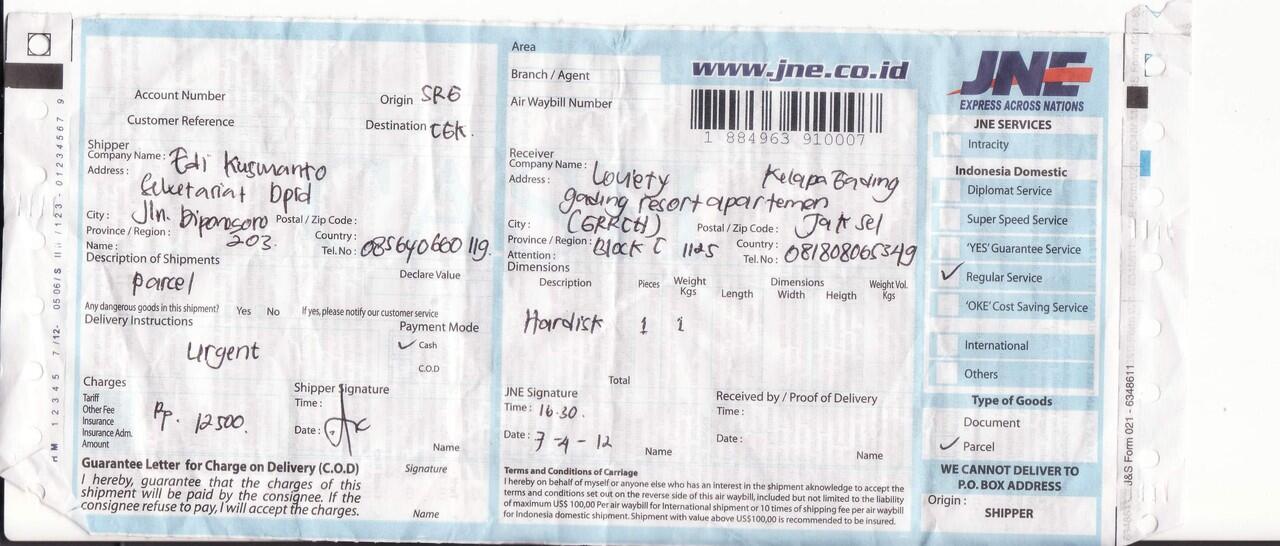 Account Number
Origin SRG
Customer Reference
Destination CGK.
Shipper
Company Name : Edi Kuswanto
Address : Seketariat Dprd
City : Jln. Diponegoro Postal / Zip Code :
Province / Region : 203. Country :
Name : Tel. No : 085640660119.
Description of Shipments
Declare Value
parcel
Any dangerous goods in this shipment? Yes No If yes, please notify our customer service
Delivery Instructions
Payment Mode
✓ Cash
urgent
C.O.D
Charges
Tariff
Other Fee
Insurance
Insurance Adm.
Amount
Rp. 12500.
Shipper Signature
Time :
Date :
Name
Guarantee Letter for Charge on Delivery (C.O.D)
Signature
I hereby, guarantee that the charges of this
shipment will be paid by the consignee. If the
consignee refuse to pay, I will accept the charges.
Name
Area
Branch / Agent
www.jne.co.id
Air Waybill Number
1 884963 910007
Receiver
Company Name : Kelapa Gading
Address : gading resort apartemen
City : (GRRCH) Postal / Zip Code : Jak sel
Province / Region : Block C 1125 Country :
Attention : Tel. No : 081808065349
Dimensions
Description Pieces Weight Kgs Length Dimensions Width Heigth Weight Vol. Kgs
Hardisk 1 1
Total
JNE Signature
Time : 16.30.
Date : 7-4-12
Name
Received by / Proof of Delivery
Time :
Date :
Name
Terms and Conditions of Carriage
I hereby on behalf of myself or anyone else who has an interest in the shipment aknowledge to accept the
terms and conditions set out on the reverse side of this air waybill, included but not limited to the liability
of maximum US$ 100,00 Per air waybill for International shipment or 10 times of shipping fee per air waybill
for Indonesia domestic shipment. Shipment with value above US$100,00 is recommended to be insured.
JNE
EXPRESS ACROSS NATIONS
JNE SERVICES
Intracity
Indonesia Domestic
Diplomat Service
Super Speed Service
'YES' Guarantee Service
✓ Regular Service
'OKE' Cost Saving Service
International
Others
Type of Goods
Document
✓ Parcel
WE CANNOT DELIVER TO
P.O. BOX ADDRESS
Origin :
SHIPPER
J&S Form 021 - 6348611